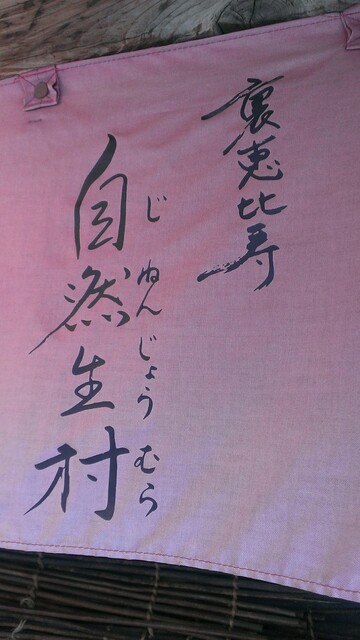 裏恵比寿
自然生村
じねんじょうむら